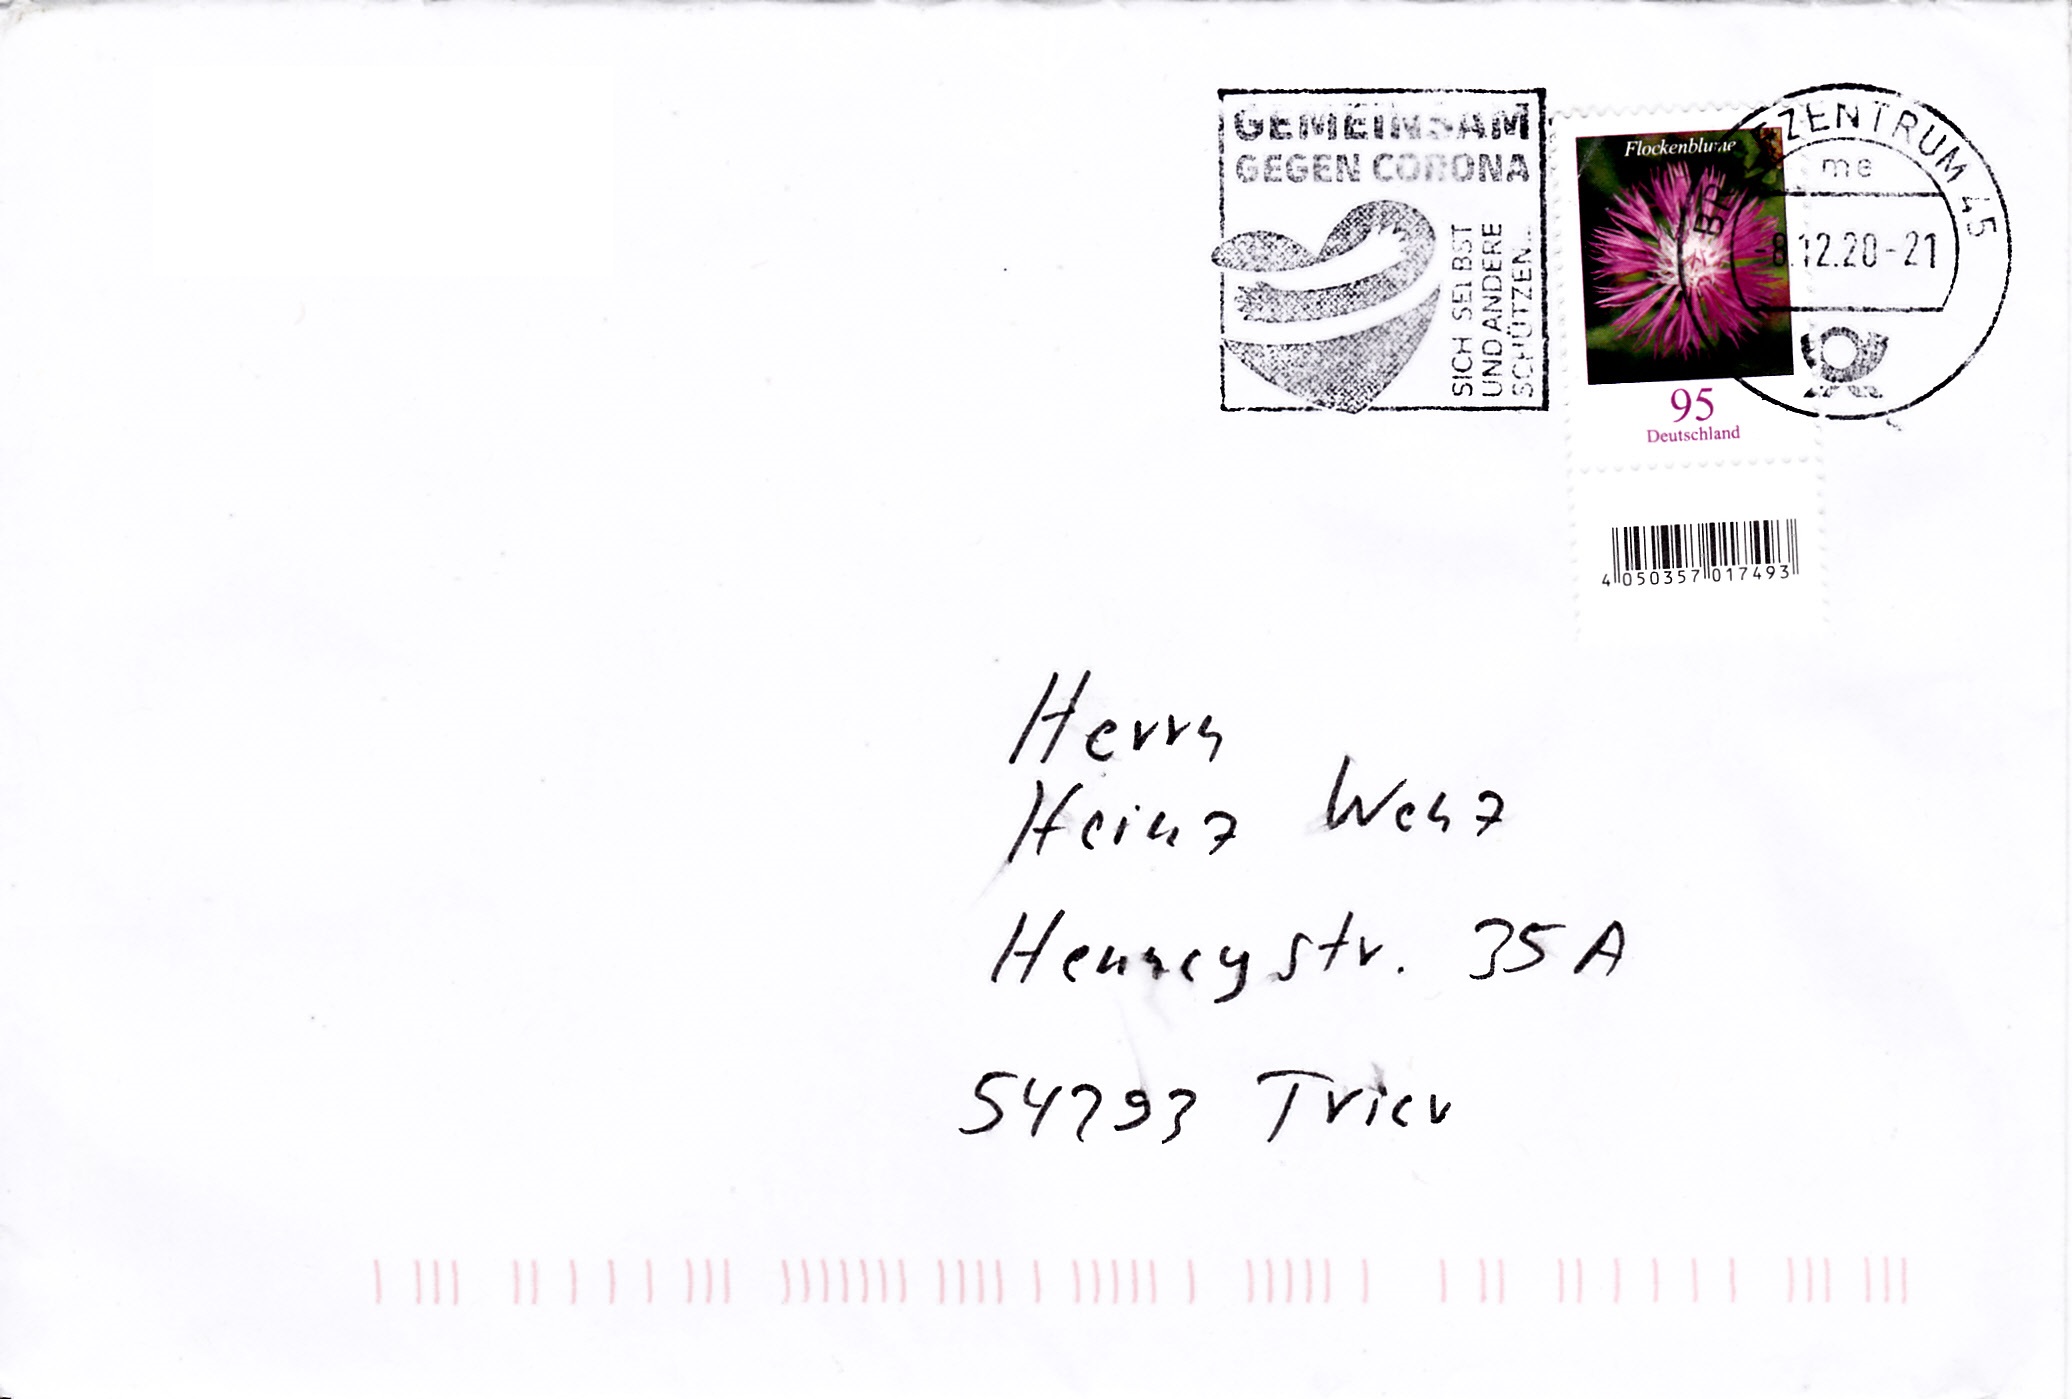 GEMEINSAM
GEGEN CORONA
SICH SELBST
UND ANDERE
SCHÜTZEN...
Flockenblume
95
Deutschland
BRIEFZENTRUM 45
me
-8.12.20-21
4 050357 017493
Herrn
Heinz Wenz
Henneystr. 35 A
54293 Trier